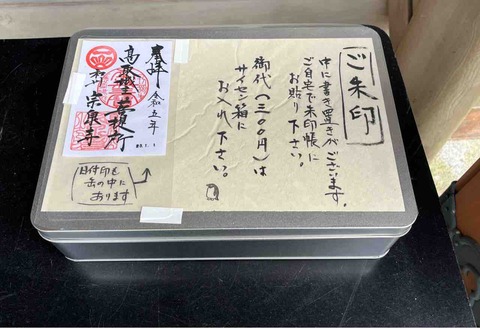 ご朱印
中に書き置きがございます。
ご自宅で朱印帳に
お貼り下さい。
御代(三〇〇円)は
サイセン箱に
お入れ下さい。
奉拝
令和五年
高取城主菩提所
宗泉寺
日付印も
缶の中に
あります